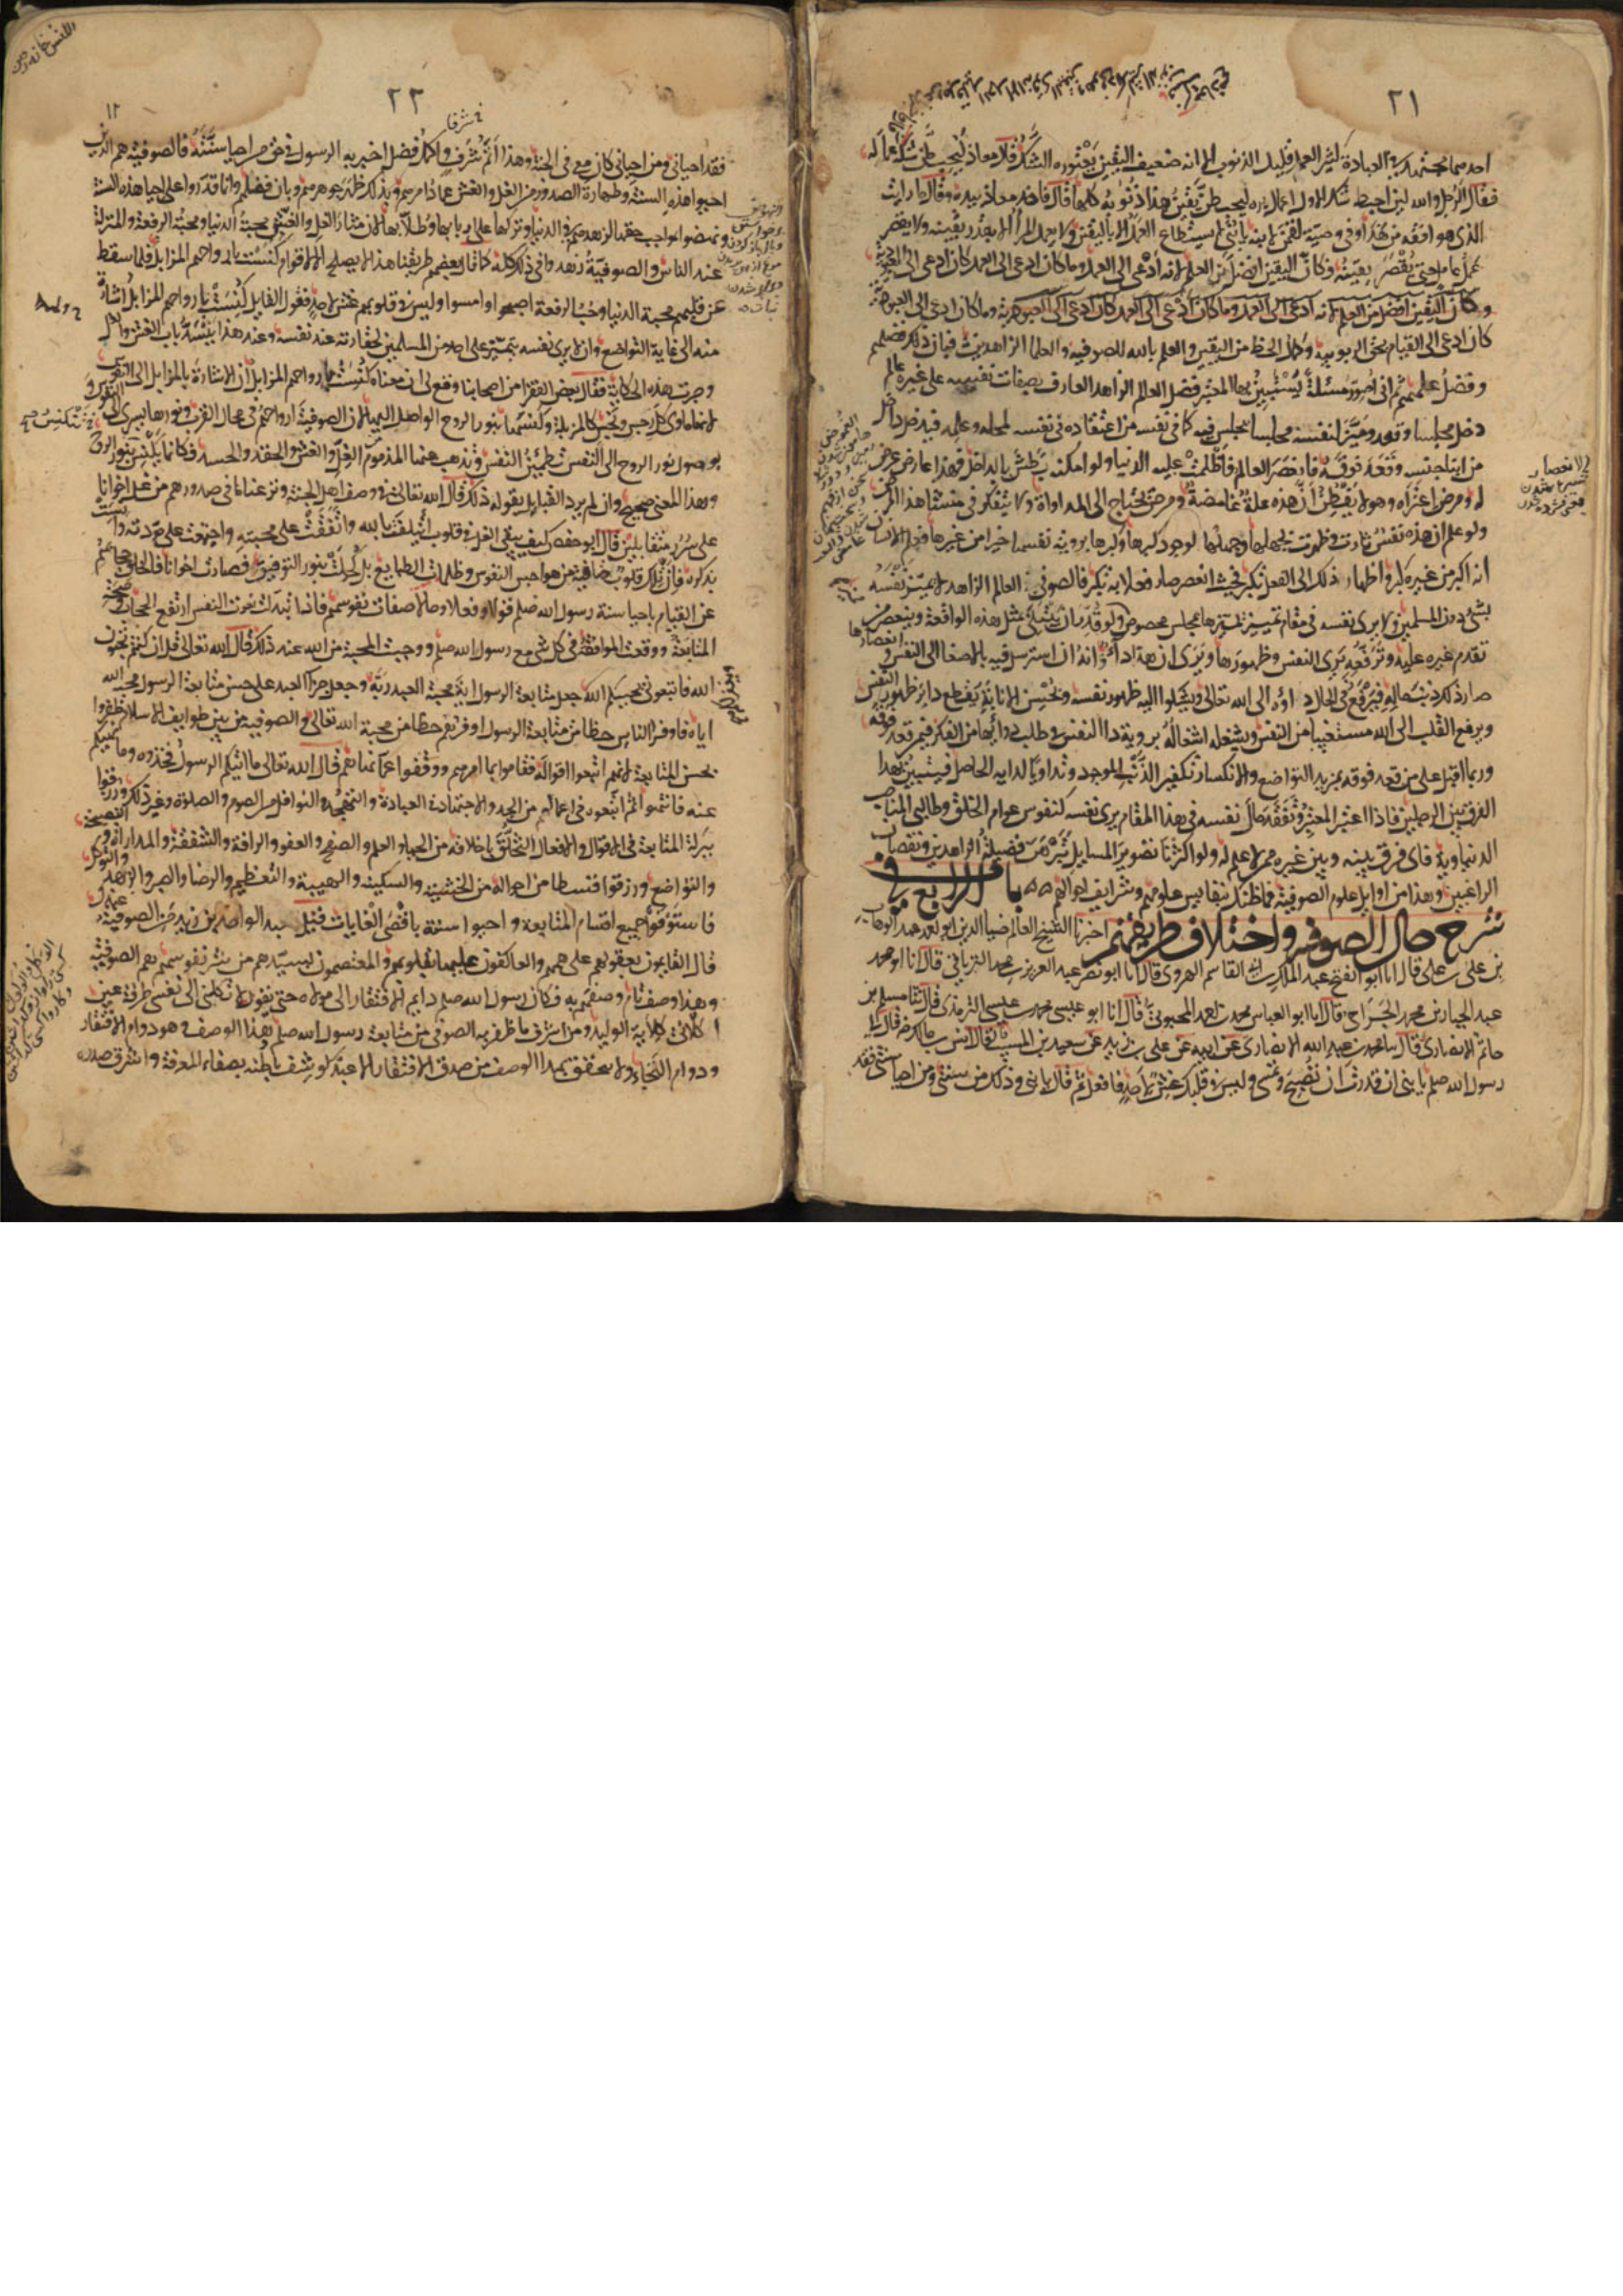 ٢١
احدهما مجتهد في العبادة كثير العمل قليل الذنوب الا انه ضعيف اليقين يعتوره الشك قال معاذ ليحبطن شكه عمله
فقال الرجل والله لئن احبط شك الاول اعمال بره ليحبطن يقين هذا ذنوبه كلها قال فاخذ معاذ بيده وقال ما رايت
الذي هو افقه من هذا وفي وصية لقمن لابنه يا بني لا يستطاع العمل الا باليقين ولا يعمل المرء الا بقدر يقينه ولا يقصر
عامل حتى يقصر يقينه فكان اليقين افضل من العلم لانه ادعى الى العمل وما كان ادعى الى العمل كان ادعى الى العبودية
وكان اليقين افضل من العلم لانه ادعى الى العمل وما كان ادعى الى العمل كان ادعى الى العبودية وما كان ادعى الى العبودية
كان ادعى الى القيام بحق الربوبية وكمال الحظ من اليقين والعلم بالله للصوفية والعلماء الزاهدين فبان بذلك فضلهم
وفضل علمهم ثم اني اصور مسئلة يستبين بها المعتبر فضل العالم الزاهد العارف بصفات نفسه على غيره عالم
دخل مجلسا وقعد وميز لنفسه مجلسا يجلس فيه كما في نفسه من اعتقاده في نفسه لمحله وعلمه فدخل داخل
من ابناء جنسه وقعد فوقه فانعصر العالم واظلمت عليه الدنيا ولو امكنه بطش بالداخل فهذا عارض عرض
له ومرض اعتراه وهو لا يفطن ان هذه علة غامضة ومرض يحتاج الى المداواة ولا يتفكر في منشا هذا المرض
ولو علم ان هذه نفس ثارت وظهرت بجهلها وجهلها لوجود كبرها وكبرها برؤية نفسها خيرا من غيرها فعلم الانسان
انه اكبر من غيره كبر واظهار ذلك الى الفعل تكبر فحيث انعصر صار فعلا به تكبر فالصوفي العالم الزاهد لا يميز نفسه
بشئ دون المسلمين ولا يرى نفسه في مقام تمييز يميزها بمجلس مخصوص ولو قدر ان يبتلى بمثل هذه الواقعة وينعصر من
تقدم غيره عليه وترفعه يرى النفس وظهورها ويرى ان هذا داء وانه ان استرسل فيه بالاصغاء الى النفس وانعصارها
صار ذلك ذنب حاله فيرفع في الحال داؤه الى الله تعالى ويشكو اليه ظهور نفسه ويحسن الانابة ويقطع دابر ظهور النفس
ويرفع القلب الى الله مستغيثا من النفس ويشغله اشتغاله برؤية داء النفس في طلب دوائها من الفكر فيمن قعد فوقه
وربما اقبل على من قعد فوقه بمزيد التواضع والانكسار تكفيرا للذنب الموجود وتداويا لدائه الحاصل فيتبين بهذا
الفرق بين الرجلين فاذا اعتبر المعتبر وتفقد حال نفسه في هذا المقام يرى نفسه كنفوس عوام الخلق وطالبي المناصب
الدنياوية فاي فرق بينه وبين غيره ممن لا علم له ولو اكثرنا تصوير المسايل لتبرهن فضيلة الزاهدين ونقصان
الراغبين وهذا من اوايل علوم الصوفية فما ظنك بنفايس علومهم وشرايف احوالهم الباب الرابع في
شرح حال الصوفية واختلاف طريقتهم اخبرنا الشيخ العالم ضياء الدين ابو احمد عبد الوهاب
بن علي بن علي قال انا ابو الفتح عبد الملك بن ابي القاسم الهروي قال انا ابو نصر عبد العزيز بن محمد الترياقي قال انا ابو محمد
عبد الجبار بن محمد الجراحي قال انا ابو العباس محمد بن احمد المحبوبي قال انا ابو عيسى محمد بن عيسى الترمذي قال ثنا مسلم بن
حاتم الانصاري قال ثنا محمد بن عبد الله الانصاري عن ابيه عن علي بن زيد عن سعيد بن المسيب قال قال انس بن مالك رض قال لي
رسول الله صلعم يا بني ان قدرت ان تصبح وتمسي وليس في قلبك غش لاحد فافعل ثم قال يا بني وذلك من سنتي ومن احيا سنتي فقد
٢٢
فقد احياني ومن احياني كان معي في الجنة وهذا اتم شرف واكمل فضل اخبر به الرسول في حق من احيا سنته فالصوفية هم الذين
احيوا هذه السنة وطهارة الصدور من الغل والغش عماد امرهم وبذلك ظهر جوهرهم وبان فضلهم وانما قدروا على احياء هذه السنة
ونهضوا بواجب حقها لزهدهم في الدنيا وتركها على اربابها وطلابها لان مثار الغل والغش محبة الدنيا ومحبة الرفعة والمنزلة
عند الناس والصوفية زهدوا في ذلك كله كما قال بعضهم طريقنا هذا لا يصلح الا لاقوام كنست بارواحهم المزابل فلما سقط
عن قلبهم محبة الدنيا وحب الرفعة اصبحوا وامسوا وليس في قلوبهم غش لاحد فقول القايل كنست بارواحهم المزابل اشارة
منه الى غاية التواضع وان لا يرى نفسه يتميز على احد من المسلمين لحقارته عند نفسه وعند هذا ينسد باب الغش والغل
وجرت هذه الحكاية فقال بعض الفقراء من اصحابنا وقع لي ان معناه كنست بارواحهم المزابل ان الاشارة بالمزابل الى النفوس
لانها ماوى كل رجس ونجس كالمزبلة وكنسها بنور الروح الواصل اليها لان الصوفية ارواحهم في محال القرب ونورها يسري الى النفوس
بوصول نور الروح الى النفس تطهر النفس ويذهب عنها المذموم من الغل والغش والحقد والحسد فكانها تكنس بنور الروح
وهذا المعنى صحيح وان لم يرد القايل بقوله ذلك قال الله تعالى في وصف اهل الجنة ونزعنا ما في صدورهم من غل اخوانا
على سرر متقابلين قال ابو حفص كيف يبقى الغل في قلوب ائتلفت بالله واتفقت على محبته واجتمعت على مودته وانست
بذكره فان تلك قلوب صافية من هواجس النفوس وظلمات الطبايع بل كحلت بنور التوفيق فصارت اخوانا فالخلق حجابهم
عن القيام باحياء سنة رسول الله صلعم قولا وفعلا وحالا صفات نفوسهم فاذا تبدلت نعوت النفس ارتفع الحجاب وصحت
المتابعة ووقعت الموافقة في كل شئ مع رسول الله صلعم ووجبت المحبة من الله عند ذلك قال الله تعالى قل ان كنتم تحبون
الله فاتبعوني يحببكم الله جعل متابعة الرسول اية محبة العبد ربه وجعل جزاء العبد على حسن متابعة الرسول محبة الله
اياه فاوفر الناس حظا من متابعة الرسول اوفرهم حظا من محبة الله تعالى والصوفية من بين طوايف الاسلام ظفروا
بحسن المتابعة لانهم اتبعوا اقواله فقاموا بما امرهم ووقفوا عما نهاهم قال الله تعالى ما اتيكم الرسول فخذوه وما نهيكم
عنه فانتهوا ثم اتبعوه في اعماله من الجد والاجتهاد في العبادة والتهجد والنوافل من الصوم والصلوة وغير ذلك ورزقوا
ببركة المتابعة في الاقوال والافعال التخلق باخلاقه من الحياء والحلم والصفح والعفو والرافة والشفقة والمداراة والنصيحة
والتواضع ورزقوا قسطا من احواله من الخشية والسكينة والهيبة والتعظيم والرضا والصبر والزهد والتوكل
فاستوفوا جميع اقسام المتابعة واحيوا سنته باقصى الغايات قيل لعبد الواحد بن زيد من الصوفية عندك
قال القايمون بعقولهم على همهم والعاكفون عليها بقلوبهم والمعتصمون بسيدهم من شر نفوسهم هم الصوفية
وهذا وصف تام وصفهم به فكان رسول الله صلعم دايم الافتقار الى مولاه حتى يقول لا تكلني الى نفسي طرفة عين
اكلأني كلاءة الوليد ومن اشرف ما ظفر به الصوفي من متابعة رسول الله صلعم هذا الوصف وهو دوام الافتقار
ودوام التجاء ولا يتحقق بهذا الوصف من صدق الافتقار الا عبد كوشف باطنه بصفاء المعرفة واشرق صدره